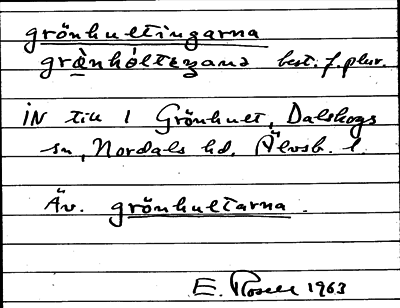 grönhultingarna
grønhóltezana best. f. plur.
IN till 1 Grönhult, Dalskogs
sn, Nordals hd. Älvsb. l.
Äv. grönhultarna.
E. Rosell 1963